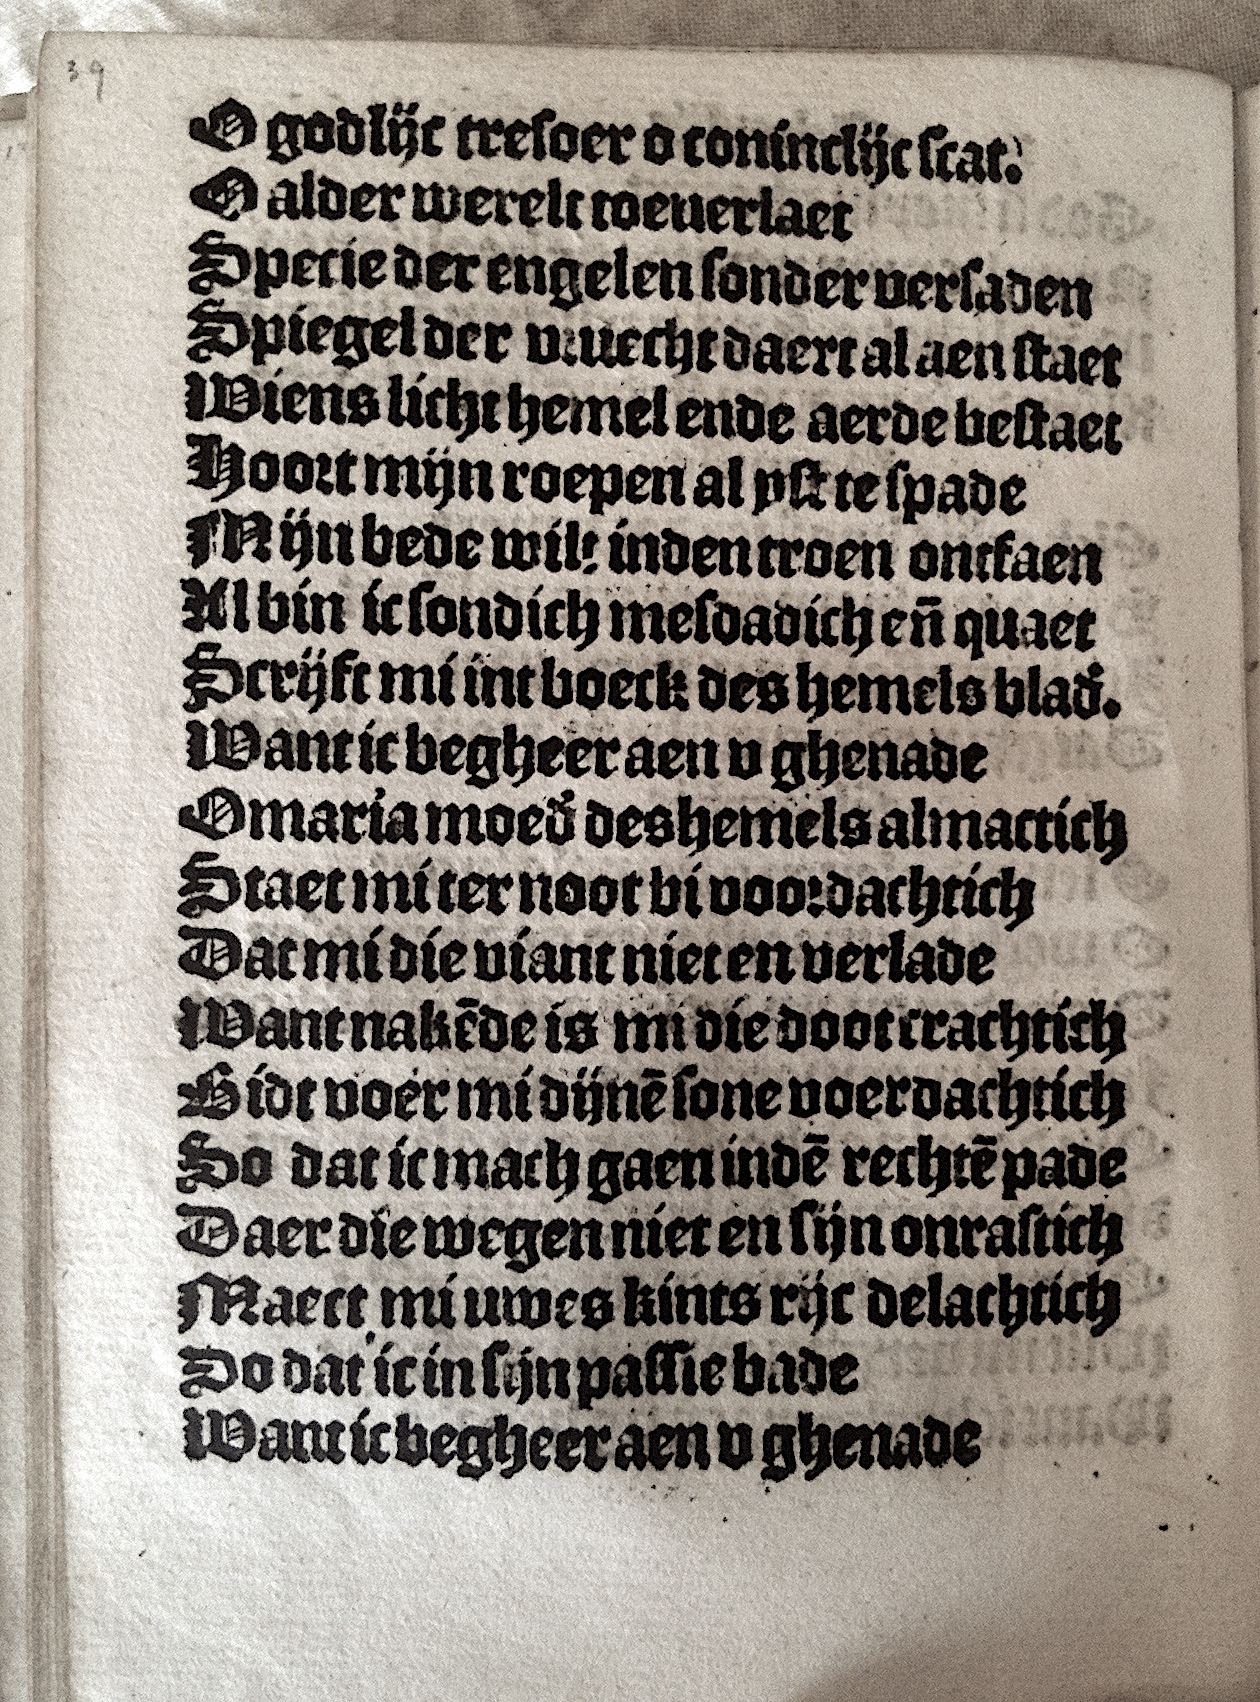 39
O godlijc tresoer o coninclijc scat.
O alder werelt toeuerlaet
Specie der engelen sonder versaden
Spiegel der vruecht daert al aen staet
Wiens licht hemel ende aerde bestaet
Hoort mijn roepen al yst te spade
Mijn bede wilt inden troen ontfaen
Al bin ic sondich mesdadich en̄ quaet
Scrijft mi int boeck des hemels blad᷑.
Want ic begheer aen v ghenade
O maria moed᷑ des hemels almactich
Staet mi ter noot bi voordachtich
Dat mi die viant niet en verlade
Want nakēde is mi die doot crachtich
Bidt voer mi dijnē sone voerdachtich
So dat ic mach gaen indē rechtē pade
Daer die wegen niet en sijn onrastich
Maect mi uwes kints rijc delachtich
So dat ic in sijn passie bade
Want ic begheer aen v ghenade